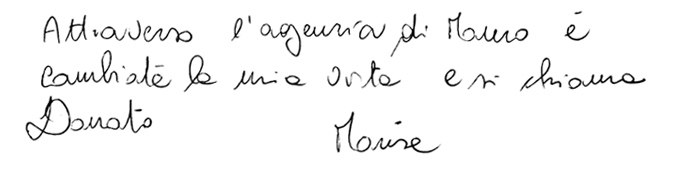 Attraverso l'agenzia di Mauro è
cambiata la mia vita e si chiama
Donato
Marise